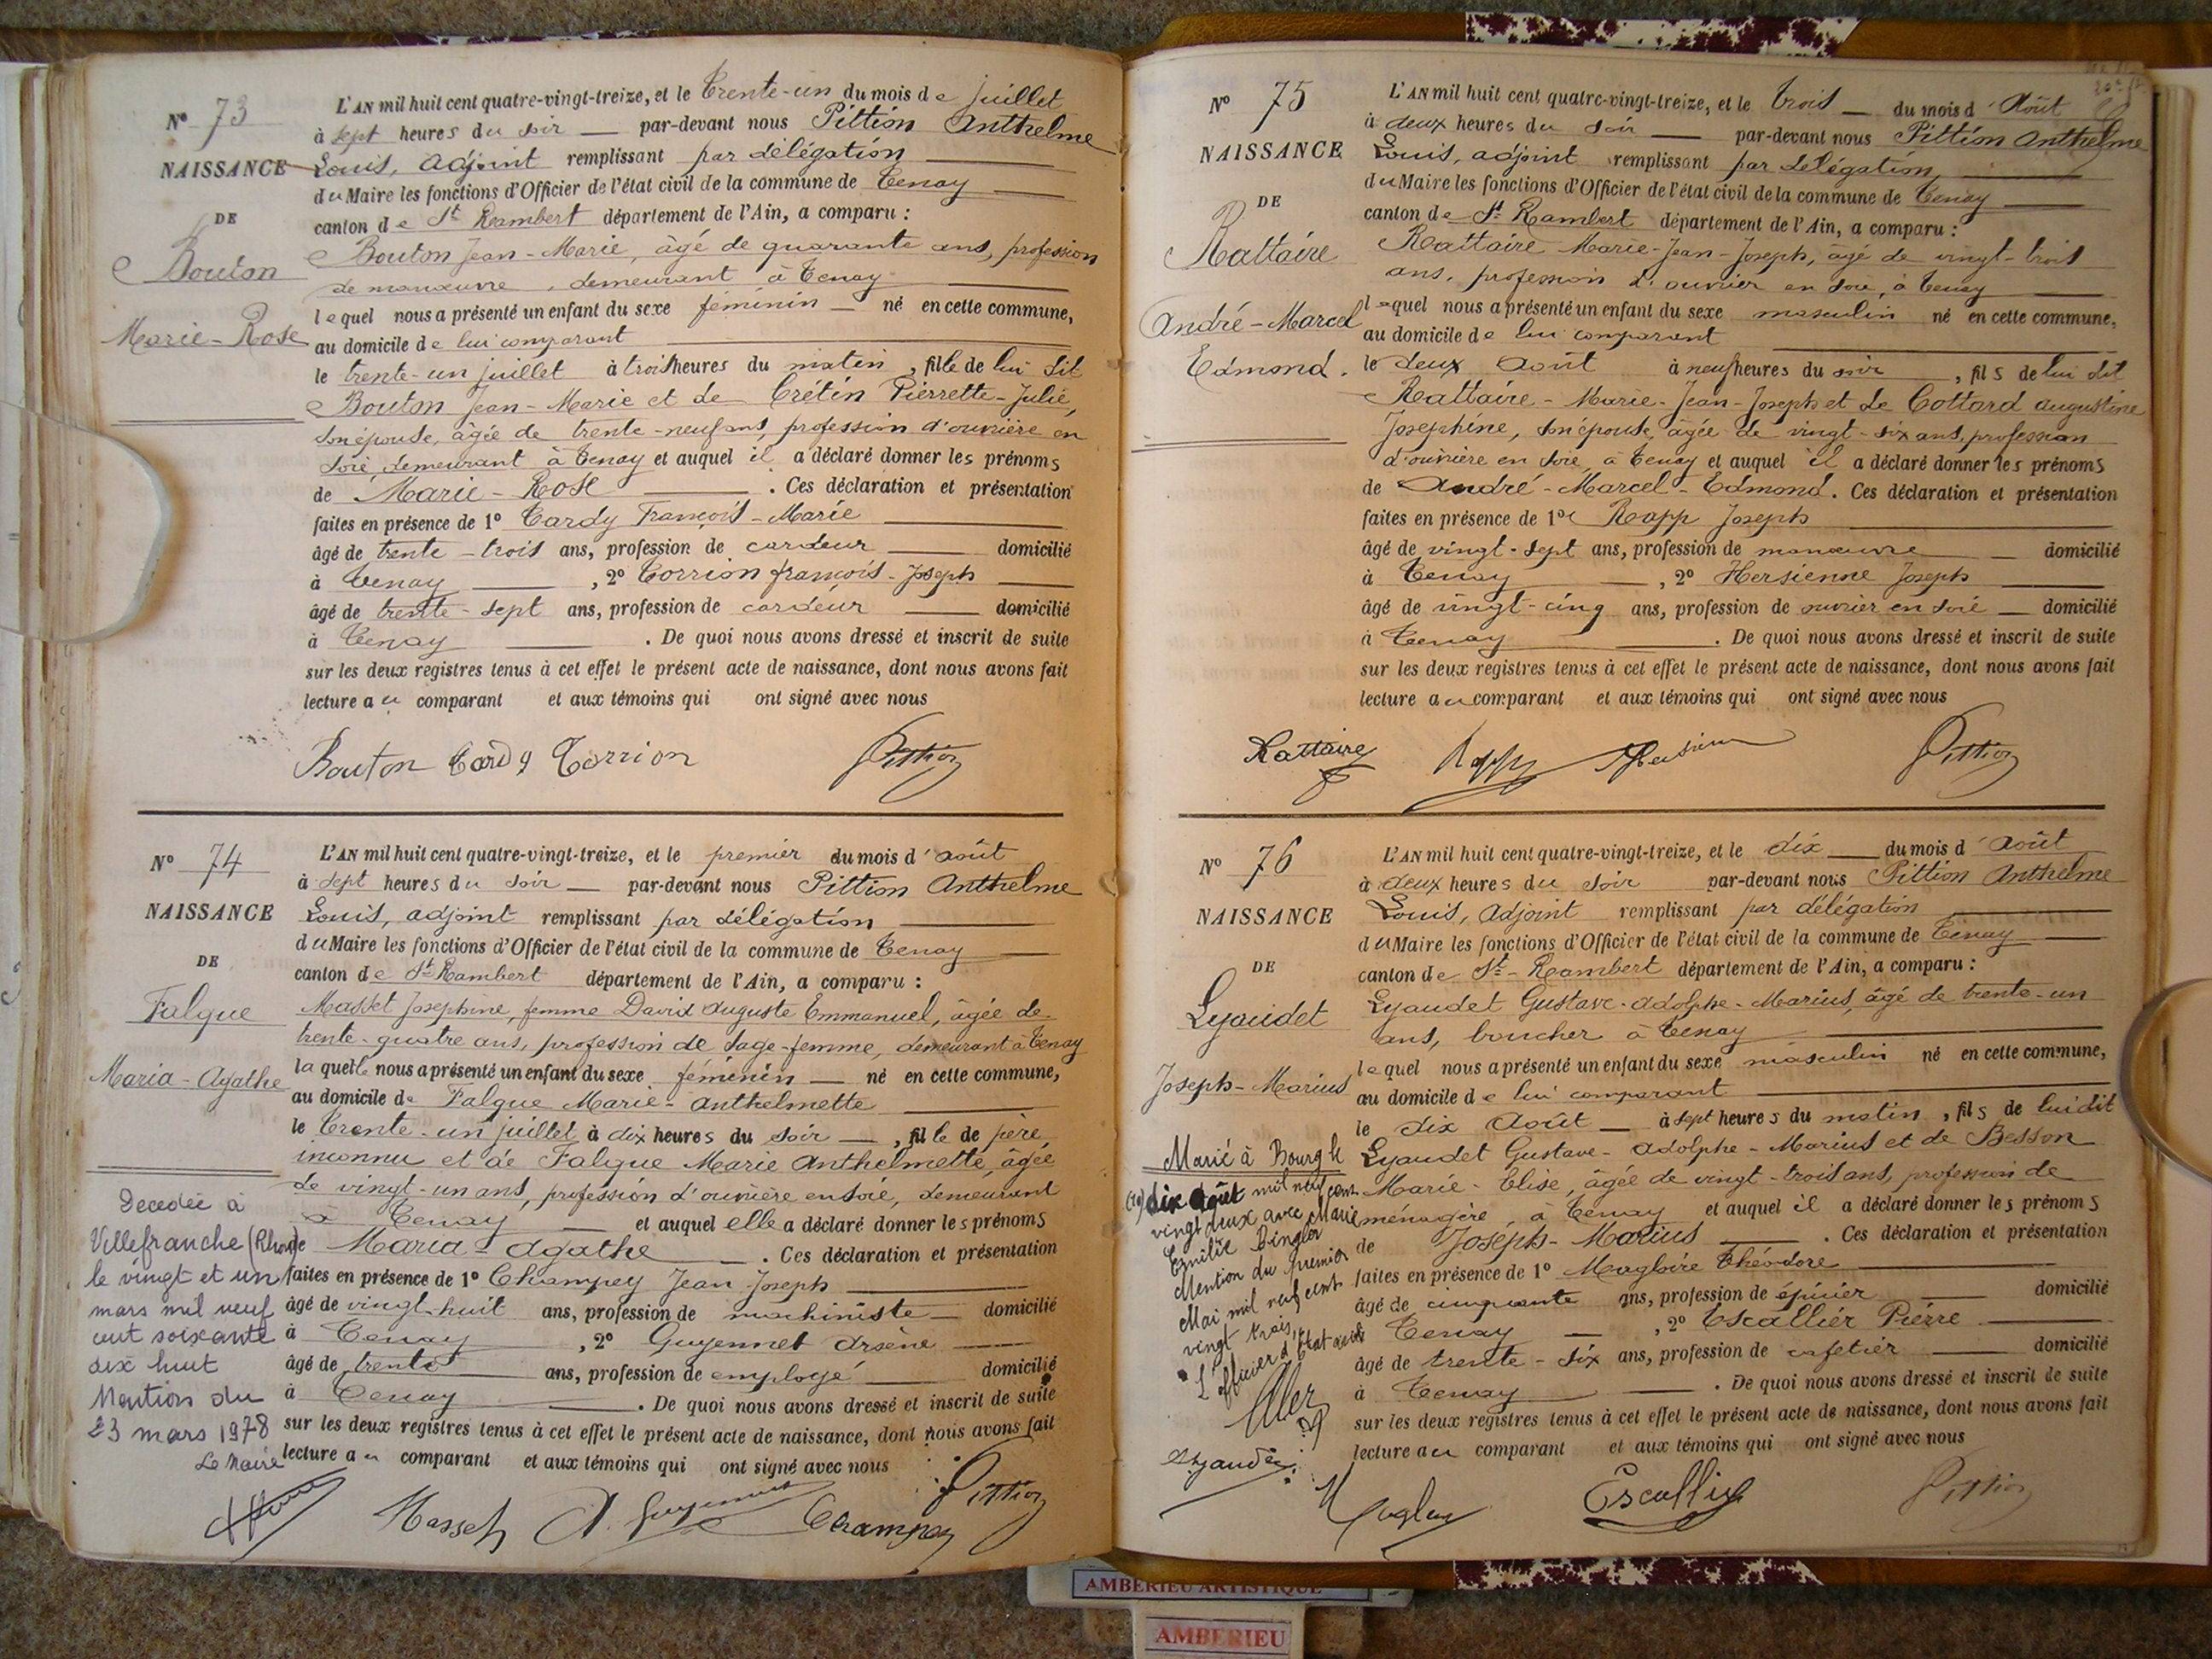 N° 73
NAISSANCE
DE
Bouton
Marie-Rose
L'AN mil huit cent quatre-vingt-treize, et le trente-un du mois de juillet
à sept heures du soir par-devant nous Pittion Anthelme
Louis, adjoint remplissant par délégation
du Maire les fonctions d'Officier de l'état civil de la commune de Tenay
canton de St Rambert département de l'Ain, a comparu :
Bouton Jean-Marie, âgé de quarante ans, profession
de manœuvre, demeurant à Tenay
lequel nous a présenté un enfant du sexe féminin né en cette commune,
au domicile de lui comparant
le trente-un juillet à trois heures du matin, fille de lui dit
Bouton Jean-Marie et de Crétin Pierrette-Julie,
son épouse, âgée de trente-neuf ans, profession d'ouvrière en
soie, demeurant à Tenay et auquel il a déclaré donner les prénoms
de Marie-Rose . Ces déclaration et présentation
faites en présence de 1° Cardy François-Marie
âgé de trente-trois ans, profession de cardeur domicilié
à Tenay , 2° Torrion françois-Joseph
âgé de trente-sept ans, profession de cardeur domicilié
à Tenay . De quoi nous avons dressé et inscrit de suite
sur les deux registres tenus à cet effet le présent acte de naissance, dont nous avons fait
lecture au comparant et aux témoins qui ont signé avec nous
Bouton Cardy Torrion Pittion
N° 74
NAISSANCE
DE
Falque
Maria-Agathe
L'AN mil huit cent quatre-vingt-treize, et le premier du mois d'août
à sept heures du soir par-devant nous Pittion Anthelme
Louis, adjoint remplissant par délégation
du Maire les fonctions d'Officier de l'état civil de la commune de Tenay
canton de St Rambert département de l'Ain, a comparu :
Masset Joséphine, femme David Auguste Emmanuel, âgée de
trente-quatre ans, profession de sage-femme, demeurant à Tenay
laquelle nous a présenté un enfant du sexe féminin né en cette commune,
au domicile de Falque Marie-Anthelmette
le trente-un juillet à dix heures du soir , fille de père
inconnu et de Falque Marie Anthelmette, âgée
de vingt-un ans, profession d'ouvrière en soie, demeurant
à Tenay et auquel elle a déclaré donner les prénoms
de Maria-Agathe . Ces déclaration et présentation
faites en présence de 1° Champey Jean-Joseph
âgé de vingt-huit ans, profession de machiniste domicilié
à Tenay , 2° Guyennet Arsène
âgé de trente ans, profession de employé domicilié
à Tenay . De quoi nous avons dressé et inscrit de suite
sur les deux registres tenus à cet effet le présent acte de naissance, dont nous avons fait
lecture au comparant et aux témoins qui ont signé avec nous
Décédée à
Villefranche (Rhône)
le vingt et un
mars mil neuf
cent soixante
dix huit
Mention du
23 mars 1978
Le Maire
Masset Champey Pittion
N° 75
NAISSANCE
DE
Rattaire
André-Marcel
Edmond.
L'AN mil huit cent quatre-vingt-treize, et le trois du mois d'Août
à deux heures du soir par-devant nous Pittion Anthelme
Louis, adjoint remplissant par délégation
du Maire les fonctions d'Officier de l'état civil de la commune de Tenay
canton de St Rambert département de l'Ain, a comparu :
Rattaire Marie-Jean-Joseph, âgé de vingt-trois
ans, profession d'ouvrier en soie, à Tenay
lequel nous a présenté un enfant du sexe masculin né en cette commune,
au domicile de lui comparant
le deux Août à neuf heures du soir , fils de lui dit
Rattaire-Marie-Jean-Joseph et de Cottard Augustine
Joséphine, son épouse, âgée de vingt-six ans, profession
d'ouvrière en soie, à Tenay et auquel il a déclaré donner les prénoms
de André-Marcel-Edmond. Ces déclaration et présentation
faites en présence de 1° Rapp Joseph
âgé de vingt-sept ans, profession de manœuvre domicilié
à Tenay , 2° Hersienne Joseph
âgé de vingt-cinq ans, profession de ouvrier en soie domicilié
à Tenay . De quoi nous avons dressé et inscrit de suite
sur les deux registres tenus à cet effet le présent acte de naissance, dont nous avons fait
lecture au comparant et aux témoins qui ont signé avec nous
Rattaire Rapp Pittion
N° 76
NAISSANCE
DE
Lyaudet
Joseph-Marius
L'AN mil huit cent quatre-vingt-treize, et le dix du mois d'Août
à deux heures du soir par-devant nous Pittion Anthelme
Louis, Adjoint remplissant par délégation
du Maire les fonctions d'Officier de l'état civil de la commune de Tenay
canton de St-Rambert département de l'Ain, a comparu :
Lyaudet Gustave-Adolphe-Marius, âgé de trente-un
ans, boucher à Tenay
lequel nous a présenté un enfant du sexe masculin né en cette commune,
au domicile de lui comparant
le dix Août à sept heures du matin , fils de lui dit
Lyaudet Gustave-Adolphe-Marius et de Besson
Marie-Elise, âgée de vingt-trois ans, profession de
ménagère, à Tenay et auquel il a déclaré donner les prénoms
de Joseph-Marius . Ces déclaration et présentation
faites en présence de 1° Magloire Théodore
âgé de cinquante ans, profession de épicier domicilié
à Tenay , 2° Escallier Pierre
âgé de trente-six ans, profession de cafetier domicilié
à Tenay . De quoi nous avons dressé et inscrit de suite
sur les deux registres tenus à cet effet le présent acte de naissance, dont nous avons fait
lecture au comparant et aux témoins qui ont signé avec nous
Marié à Bourg le
(10) dix Août mil neuf cent
vingt deux avec Marie
Emilie Pingler
Mention du premier
Mai mil neuf cent
vingt trois.
L'officier d'Etat civil
Lyaudet Escallier Pittion
AMBERIEU ARTISTIQUE
AMBERIEU